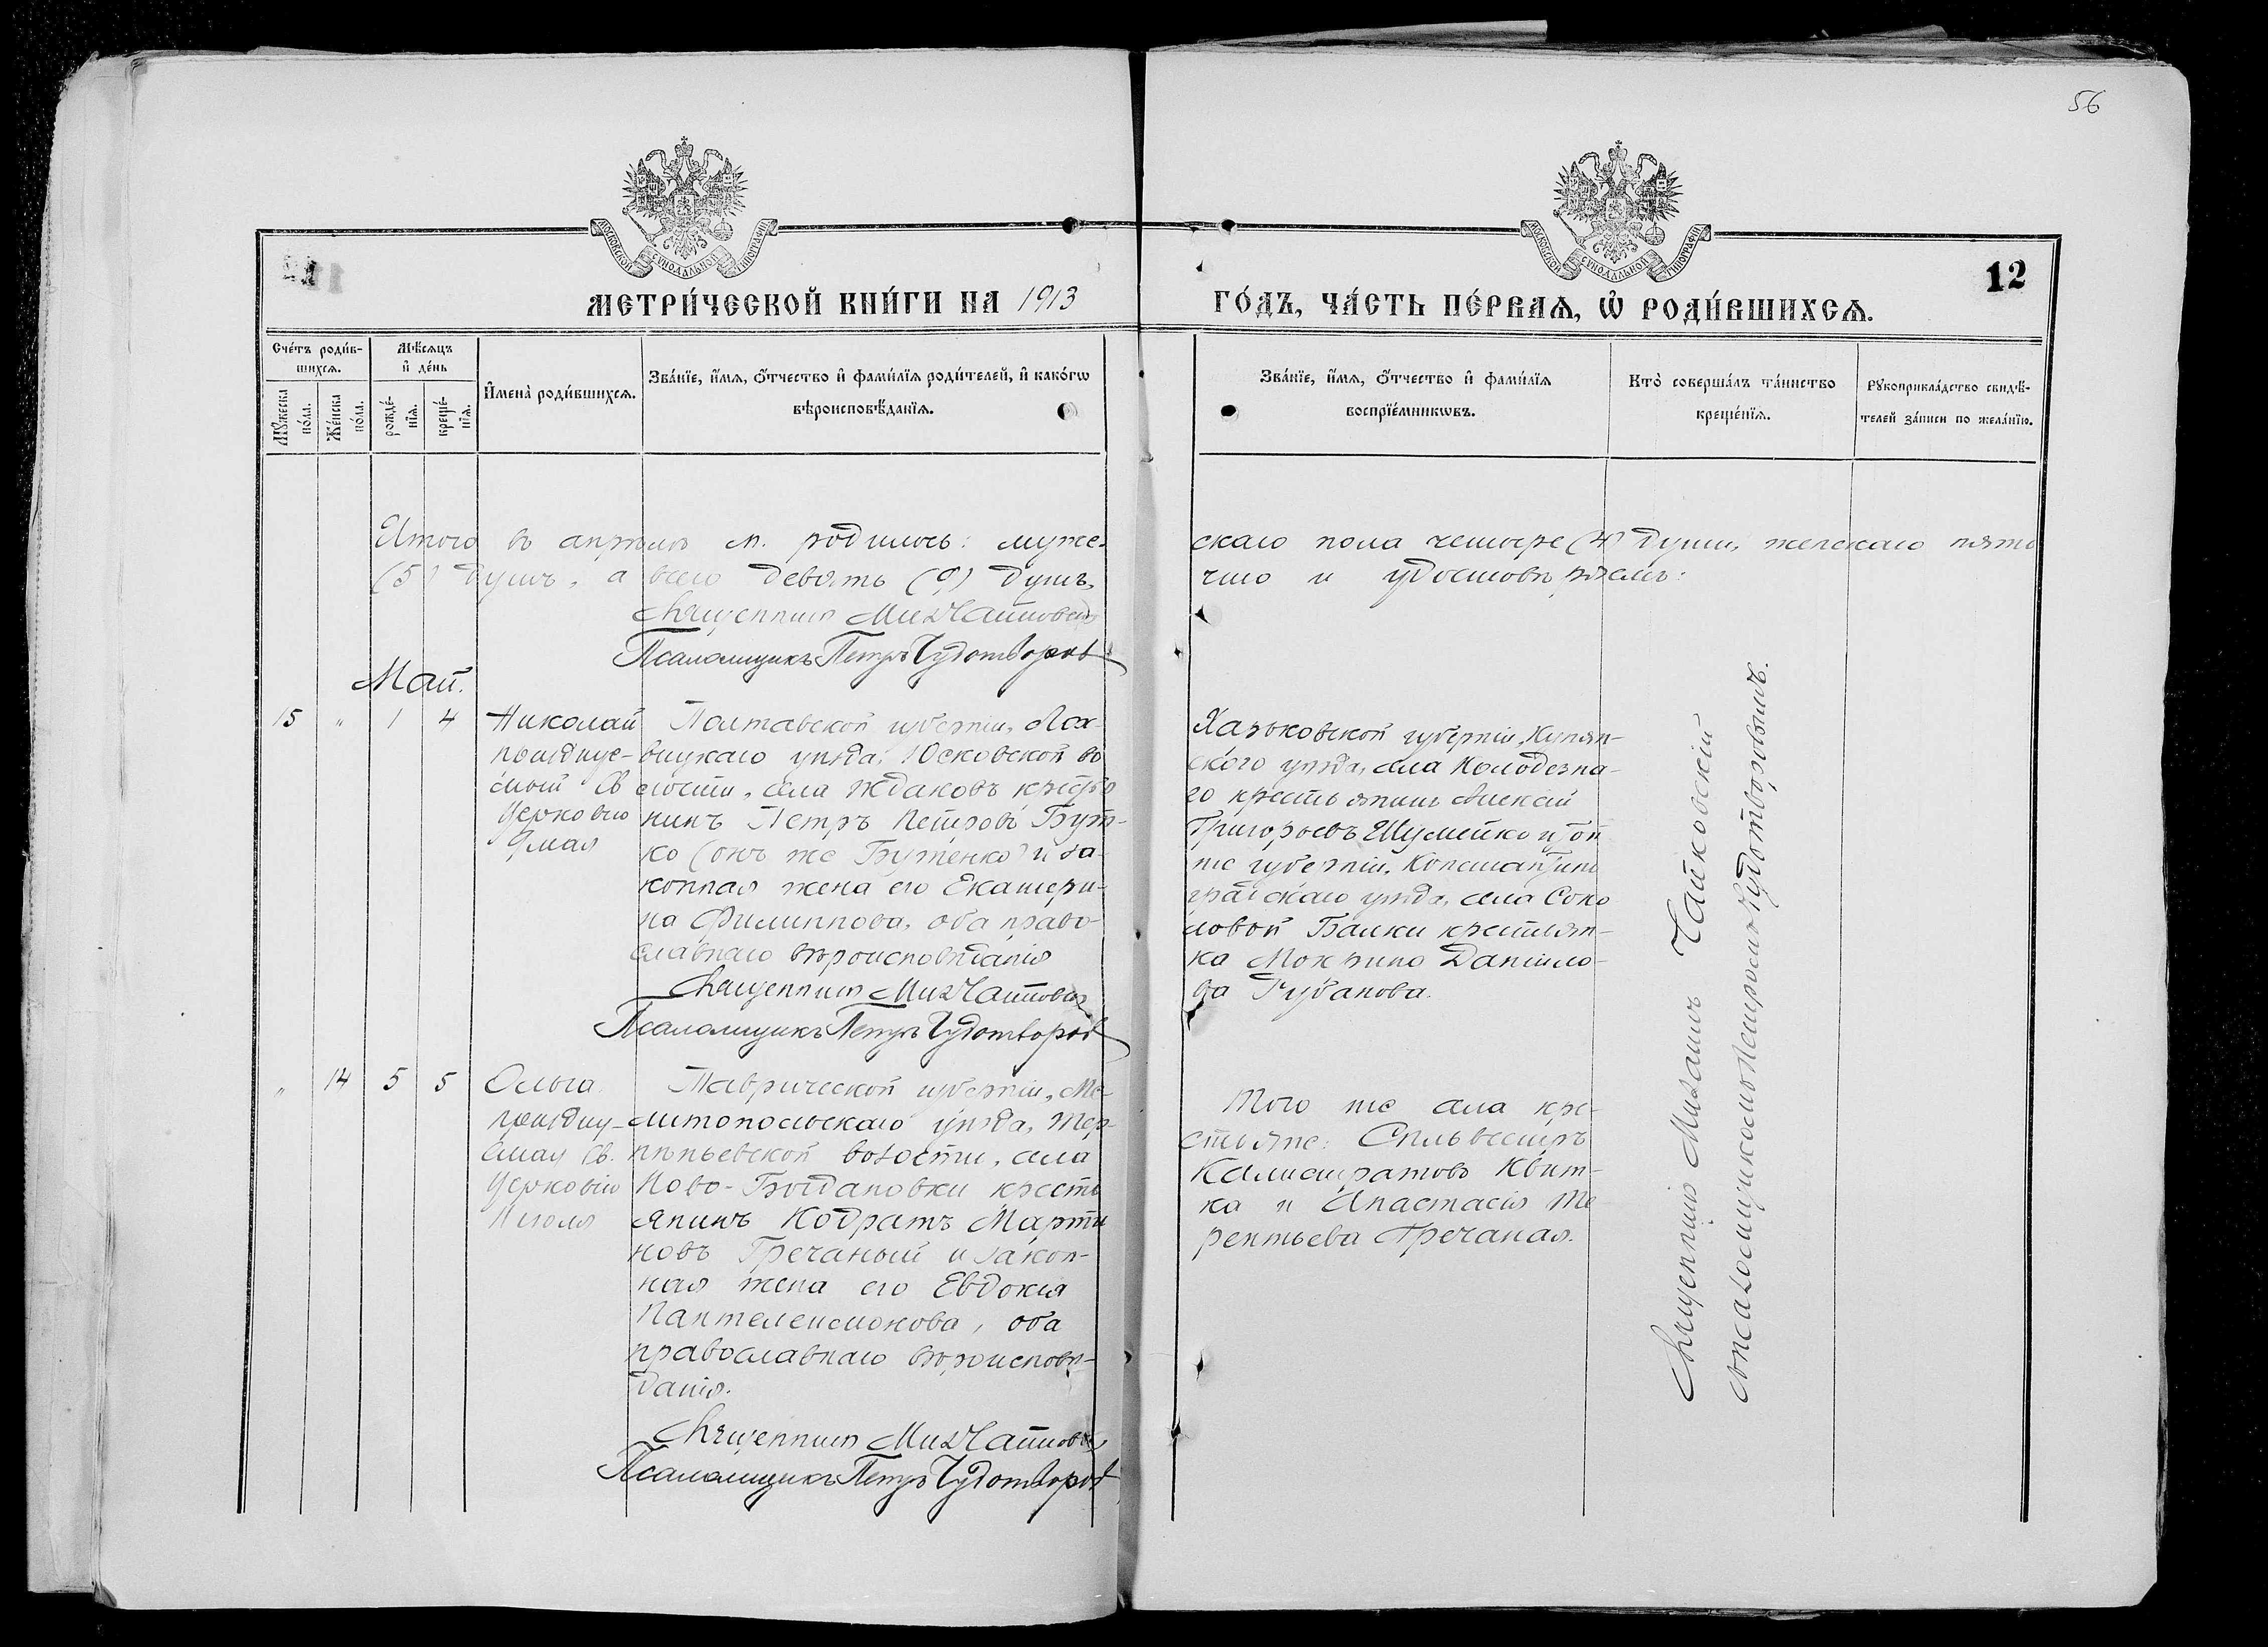 56
МОСКОВСКОЙ СѴНОДАЛЬНОЙ ТИПОГРАФІИ
МОСКОВСКОЙ СѴНОДАЛЬНОЙ ТИПОГРАФІИ
12
МЕТРИ́ЧЕСКОЙ КНИ́ГИ НА 1913
ГО́ДЪ, ЧА́СТЬ ПЕ́РВАѦ, Ѡ҆ РОДИ́ВШИХСѦ.
Сче́тъ роди́в-
шихсѧ.
Мꙋ́жеска
по́ла.
Же́нска
по́ла.
Мѣ́сѧцъ
и҆ де́нь
рожде́-
нїѧ.
креще́-
нїѧ.
И҆мена̀ роди́вшихсѧ.
Зва́нїе, и҆́мѧ, ѻ҆́тчество и҆ фами́лїѧ роди́телей, и҆ како́гѡ
вѣроисповѣ́данїѧ.
Зва́нїе, и҆́мѧ, ѻ҆́тчество и҆ фами́лїѧ
воспрїе́мникѡвъ.
Кто̀ соверша́лъ та́инство
креще́нїѧ.
Рꙋкоприкла́дство свидѣ́-
телей за́писи по жела́нїю.
Итого въ апрѣлѣ м. родилось: муже-
(5) душъ, а всего девять (9) душъ,
Священникъ Мих Чайковскій
Псаломщикъ Петръ Чудотворовъ
скаго пола четыре (4) души, женскаго пять
что и удостовѣряемъ:
Май.
15 " 1 4
Николай
погруж
Св
Церковію
9 мая
Полтавской губерніи, Лох-
вицкаго уѣзда, Юсковской во
лости, села Ждановъ крестья
нинъ Петръ Петровъ Бут-
ко (онъ же Бутенко) и за-
конная жена его Екатери-
на Филиппова, оба право-
славнаго вѣроисповѣданія
Священникъ Мих Чайковскій
Псаломщикъ Петръ Чудотворовъ
Харьковской губерніи, Купян-
ского уѣзда, села Колодезна-
го крестьянинъ Алексій
Григорьевъ Шумейко и той
же губерніи, Константино
градскаго уѣзда, села Соко
ловой Балки крестьян-
ка Мокрина Данило-
ва Рубанова.
" 14 5 5
Ольга
Св.
Церковію
11 іюля
Таврической губерніи, Ме-
литопольскаго уѣзда, Тер-
пѣньевской волости, села
Ново-Богдановки кресть
янинъ Кодратъ Марти
новъ Гречаный и закон-
ная жена его Евдокія
Пантелеимонова, оба
православнаго вѣроисповѣ-
данія.
Священникъ Мих Чайковскій
Псаломщикъ Петръ Чудотворовъ
Того же села кре-
стьяне: Сильвестръ
Калистратовъ Квит-
ка и Анастасія Те
рентьева Гречаная.
Священникъ Михаилъ Чайковскій
съ псаломщикомъ Петромъ Чудотворовымъ.